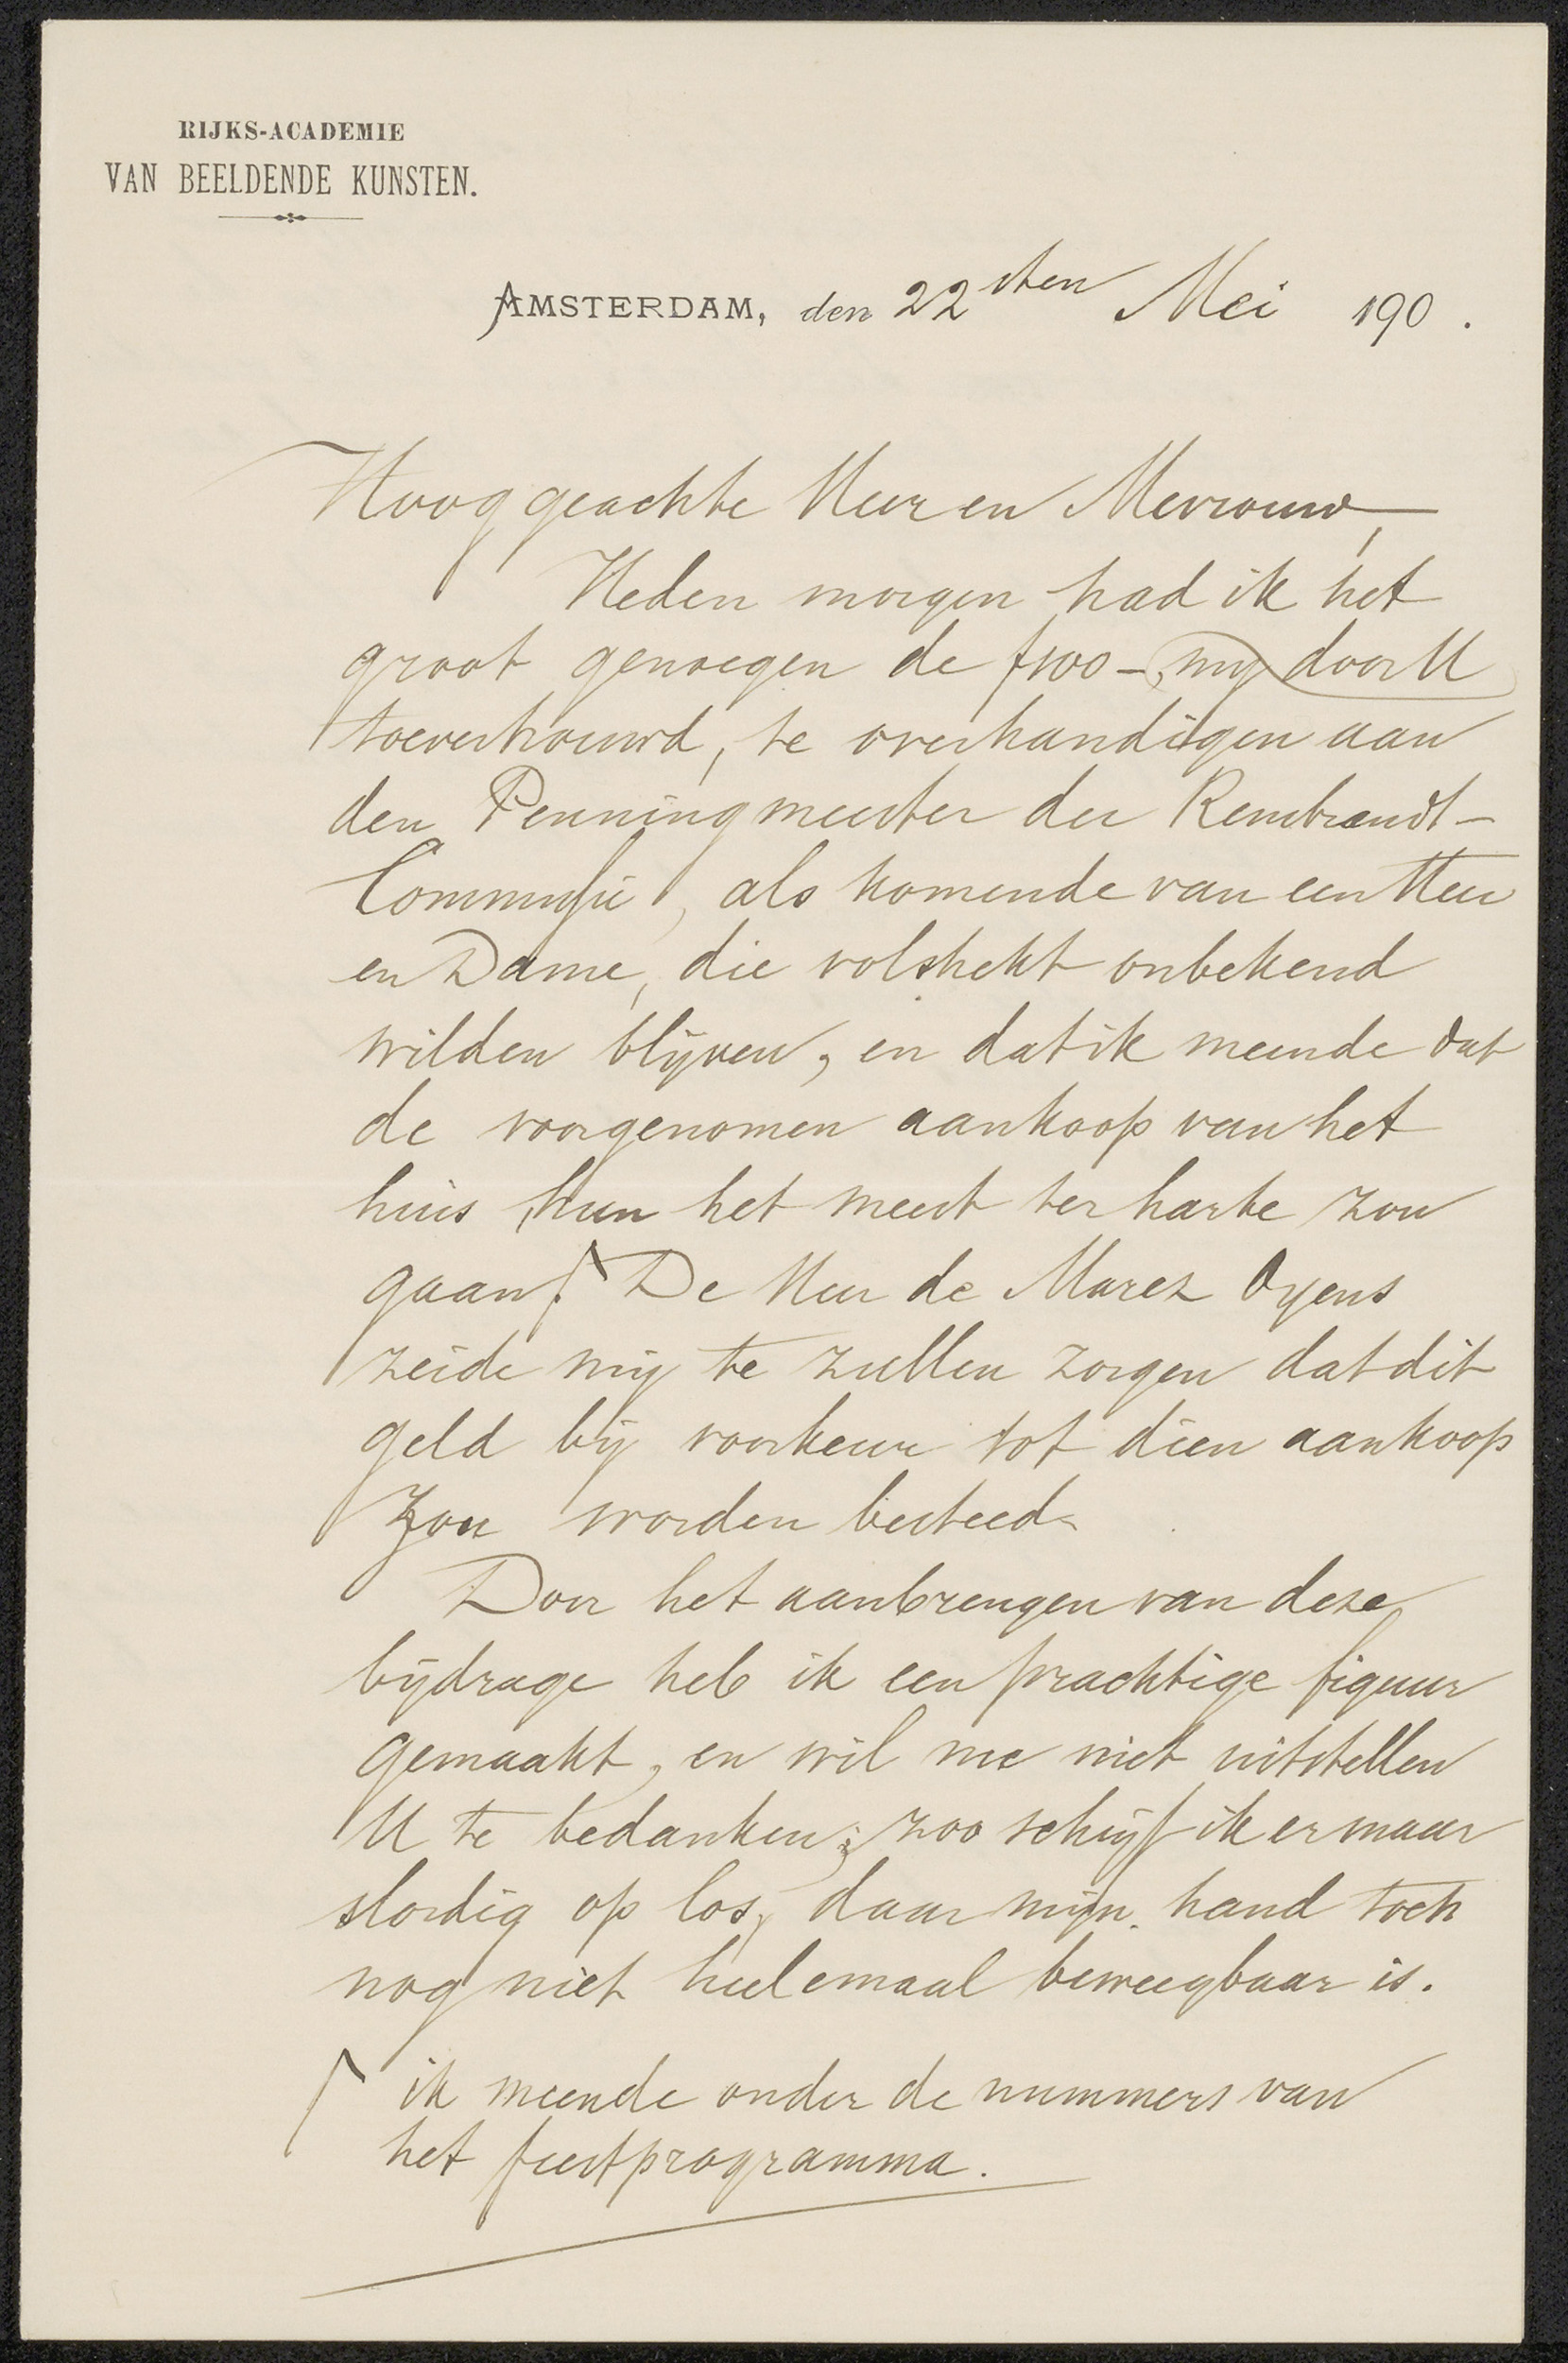 RIJKS-ACADEMIE
VAN BEELDENDE KUNSTEN.
AMSTERDAM, den 22sten Mei 190 .
Hooggeachte Heer en Mevrouw,
Heden morgen had ik het
groot genoegen de f100 -, my door U
toevertrouwd, te overhandigen aan
den Penningmeester der Rembrandt-
Commissie, als komende van een Heer
en Dame, die volstrekt onbekend
wilden blijven, en dat ik meende dat
de voorgenomen aankoop van het
huis hun het meest ter harte zou
gaan. De Heer de Marez Oyens
zeide mij te zullen zorgen dat dit
geld bij voorkeur tot dien aankoop
zou worden besteed.
Door het aanbrengen van deze
bijdrage heb ik een prachtige figuur
gemaakt, en wil me niet uitstellen
U te bedanken; zoo schrijf ik er maar
slordig op los, daar mijn hand toch
nog niet heelemaal beweegbaar is.
ik meende onder de nummers van
het feestprogramma.